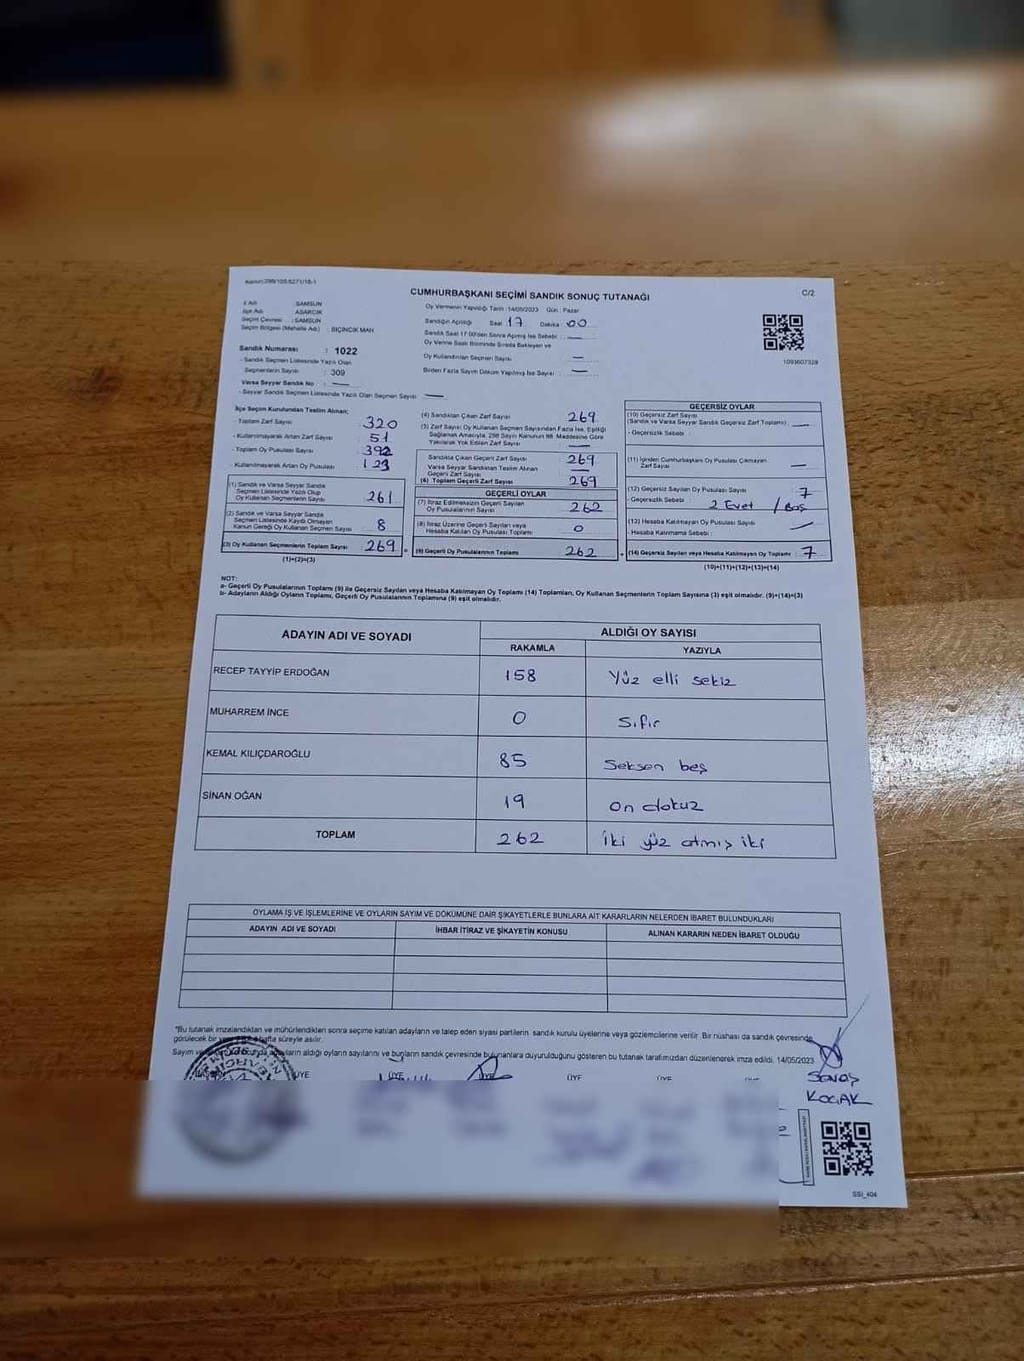 Kanun:298/105/6271/18-1
CUMHURBAŞKANI SEÇİMİ SANDIK SONUÇ TUTANAĞI
C/2
İl Adı : SAMSUN
İlçe Adı : ASARCIK
Seçim Çevresi : SAMSUN
Seçim Bölgesi (Mahalle Adı) : BİÇİNCİK MAH
Sandık Numarası : 1022
- Sandık Seçmen Listesinde Yazılı Olan
Seçmenlerin Sayısı : 309
Varsa Seyyar Sandık No : —
- Seyyar Sandık Seçmen Listesinde Yazılı Olan Seçmen Sayısı : —
Oy Vermenin Yapıldığı Tarih :14/05/2023 Gün : Pazar
Sandığın Açıldığı Saat 17 Dakika 00
Sandık Saat 17.00'den Sonra Açılmış İse Sebebi : —
Oy Verme Saati Bitiminde Sırada Bekleyen ve
Oy Kullandırılan Seçmen Sayısı —
Birden Fazla Sayım Döküm Yapılmış İse Sayısı : —
1093607329
İlçe Seçim Kurulundan Teslim Alınan;
- Toplam Zarf Sayısı 320
- Kullanılmayarak Artan Zarf Sayısı 51
- Toplam Oy Pusulası Sayısı 392
- Kullanılmayarak Artan Oy Pusulası 123
(1) Sandık ve Varsa Seyyar Sandık
Seçmen Listesinde Yazılı Olup
Oy Kullanan Seçmenlerin Sayısı 261
(2) Sandık ve Varsa Seyyar Sandık
Seçmen Listesinde Kayıtlı Olmayan
Kanun Gereği Oy Kullanan Seçmen Sayısı 8
(3) Oy Kullanan Seçmenlerin Toplam Sayısı 269
(1)+(2)=(3)
(4) Sandıktan Çıkan Zarf Sayısı 269
(5) Zarf Sayısı Oy Kullanan Seçmen Sayısından Fazla İse, Eşitliği
Sağlamak Amacıyla, 298 Sayılı Kanunun 98. Maddesine Göre
Yakılarak Yok Edilen Zarf Sayısı —
Sandıkta Çıkan Geçerli Zarf Sayısı 269
Varsa Seyyar Sandıktan Teslim Alınan
Geçerli Zarf Sayısı —
(6) Toplam Geçerli Zarf Sayısı 269
GEÇERLİ OYLAR
(7) İtiraz Edilmeksizin Geçerli Sayılan
Oy Pusulalarının Sayısı 262
(8) İtiraz Üzerine Geçerli Sayılan veya
Hesaba Katılan Oy Pusulası Toplamı 0
(9) Geçerli Oy Pusulalarının Toplamı 262
GEÇERSİZ OYLAR
(10) Geçersiz Zarf Sayısı
(Sandık ve Varsa Seyyar Sandık Geçersiz Zarf Toplamı) —
- Geçersizlik Sebebi :
(11) İçinden Cumhurbaşkanı Oy Pusulası Çıkmayan
Zarf Sayısı —
(12) Geçersiz Sayılan Oy Pusulası Sayısı 7
- Geçersizlik Sebebi 2 Evet / Boş
(13) Hesaba Katılmayan Oy Pusulası Sayısı —
- Hesaba Katılmama Sebebi :
(14) Geçersiz Sayılan veya Hesaba Katılmayan Oy Toplamı 7
(10)+(11)+(12)+(13)=(14)
NOT:
a- Geçerli Oy Pusulalarının Toplamı (9) ile Geçersiz Sayılan veya Hesaba Katılmayan Oy Toplamı (14) Toplamları, Oy Kullanan Seçmenlerin Toplam Sayısına (3) eşit olmalıdır. (9)+(14)=(3)
b- Adayların Aldığı Oyların Toplamı, Geçerli Oy Pusulalarının Toplamına (9) eşit olmalıdır.
ADAYIN ADI VE SOYADI
ALDIĞI OY SAYISI
RAKAMLA YAZIYLA
RECEP TAYYİP ERDOĞAN 158 Yüz elli sekiz
MUHARREM İNCE 0 Sıfır
KEMAL KILIÇDAROĞLU 85 Seksen beş
SİNAN OĞAN 19 on dokuz
TOPLAM 262 iki yüz atmış iki
OYLAMA İŞ VE İŞLEMLERİNE VE OYLARIN SAYIM VE DÖKÜMÜNE DAİR ŞİKAYETLERLE BUNLARA AİT KARARLARIN NELERDEN İBARET BULUNDUKLARI
ADAYIN ADI VE SOYADI İHBAR İTİRAZ VE ŞİKAYETİN KONUSU ALINAN KARARIN NEDEN İBARET OLDUĞU
*Bu tutanak imzalandıktan ve mühürlendikten sonra seçime katılan adayların ve talep eden siyasi partilerin sandık kurulu üyelerine veya gözlemcilerine verilir. Bir nüshası da sandık çevresinde
görülecek bir hafta süreyle asılır.
Sayım adayların aldığı oyların sayılarını ve bunların sandık çevresinde bulunanlara duyurulduğunu gösteren bu tutanak tarafımızdan düzenlenerek imza edildi. 14/05/2023
ÜYE ÜYE ÜYE ÜYE ÜYE
KOÇAK
SSİ_404